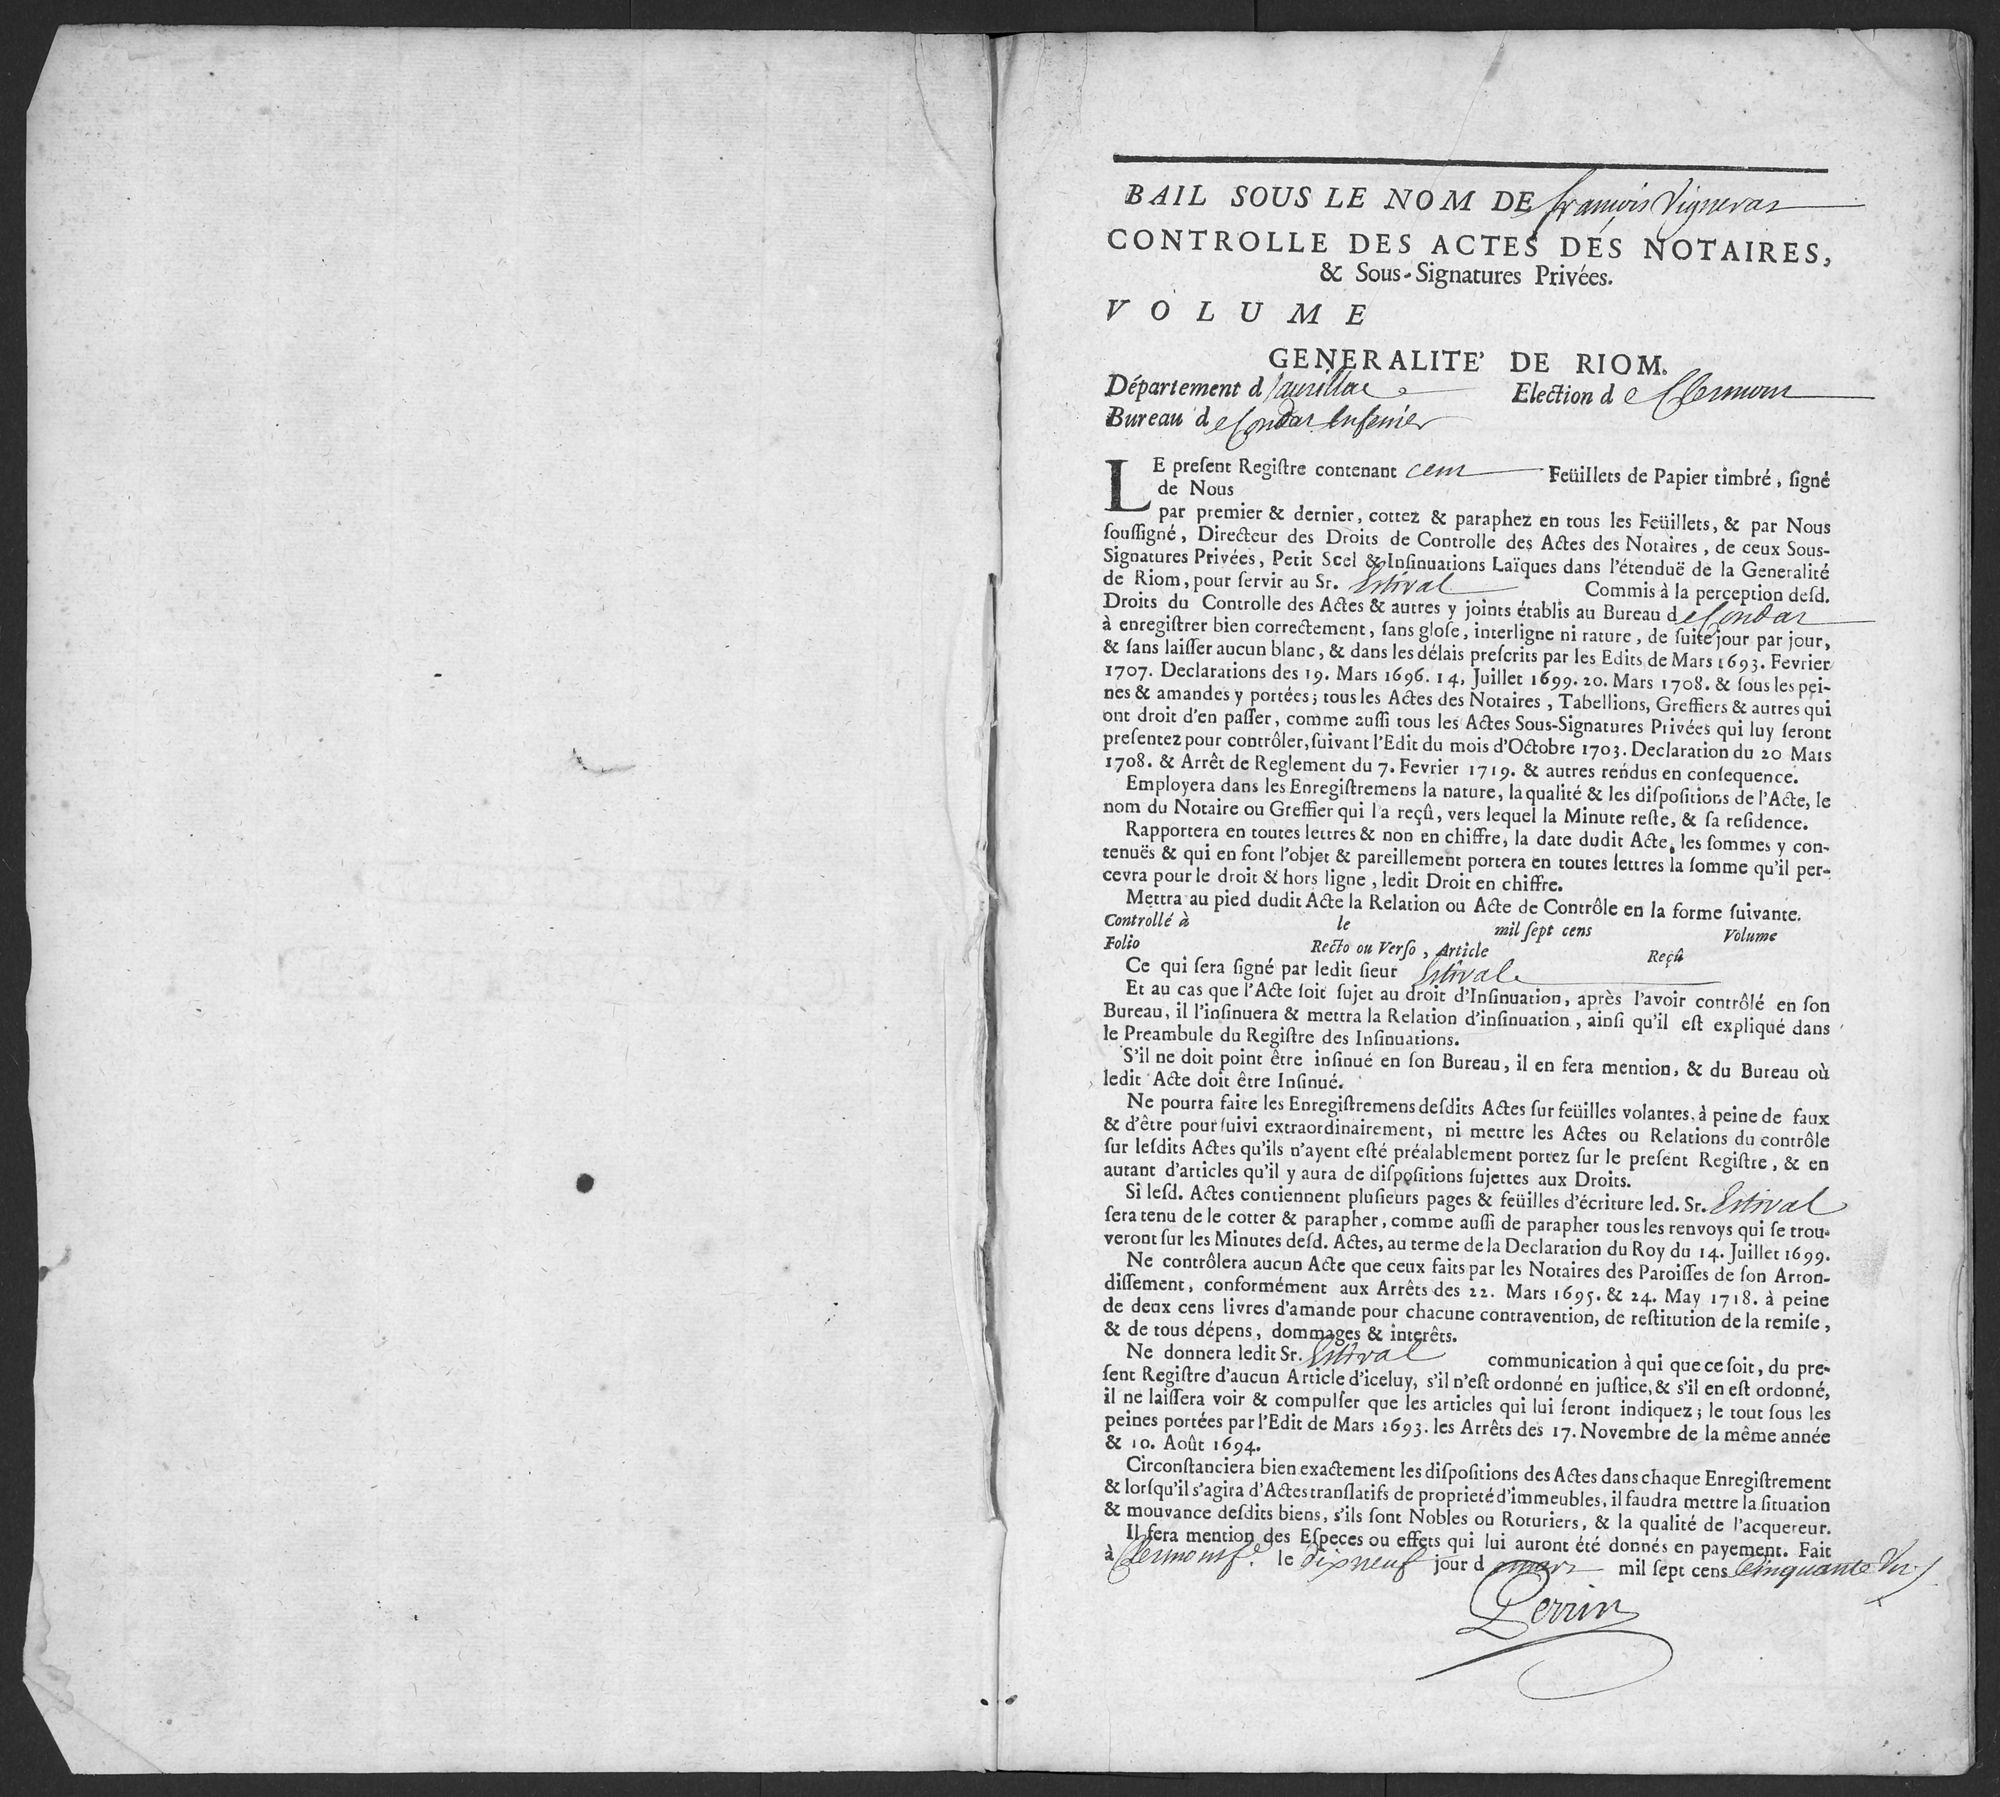 BAIL SOUS LE NOM DE françois Vigneras
CONTROLLE DES ACTES DES NOTAIRES,
& Sous-Signatures Privées.
VOLUME
GENERALITE' DE RIOM.
Département d'aurillac Election de Clermont
Bureau de Condat
LE preſent Regiſtre contenant cent Feüillets de Papier timbré, ſigné
de Nous
par premier & dernier, cottez & paraphez en tous les Feüillets, & par Nous
ſouſſigné, Directeur des Droits de Controlle des Actes des Notaires, de ceux Sous-
Signatures Privées, Petit Scel & Inſinuations Laïques dans l'étenduë de la Generalité
de Riom, pour ſervir au Sr. Estival Commis à la perception deſd.
Droits du Controlle des Actes & autres y joints établis au Bureau de Condat
à enregiſtrer bien correctement, ſans gloſe, interligne ni rature, de ſuite jour par jour,
& ſans laiſſer aucun blanc, & dans les délais preſcrits par les Edits de Mars 1693. Fevrier
1707. Declarations des 19. Mars 1696. 14. Juillet 1699. 20. Mars 1708. & ſous les pei-
nes & amandes y portées; tous les Actes des Notaires, Tabellions, Greffiers & autres qui
ont droit d'en paſſer, comme auſſi tous les Actes Sous-Signatures Privées qui luy ſeront
preſentez pour contrôler, ſuivant l'Edit du mois d'Octobre 1703. Declaration du 20 Mars
1708. & Arrêt de Reglement du 7. Fevrier 1719. & autres rendus en conſequence.
Employera dans les Enregiſtremens la nature, la qualité & les diſpoſitions de l'Acte, le
nom du Notaire ou Greffier qui l'a reçû, vers lequel la Minute reſte, & ſa reſidence.
Rapportera en toutes lettres & non en chiffre, la date dudit Acte, les ſommes y con-
tenuës & qui en font l'objet & pareillement portera en toutes lettres la ſomme qu'il per-
cevra pour le droit & hors ligne, ledit Droit en chiffre.
Mettra au pied dudit Acte la Relation ou Acte de Contrôle en la forme ſuivante.
Controllé à le mil ſept cens Volume
Folio Recto ou Verſo, Article Reçû
Ce qui ſera ſigné par ledit ſieur Estival
Et au cas que l'Acte ſoit ſujet au droit d'Inſinuation, après l'avoir contrôlé en ſon
Bureau, il l'inſinuera & mettra la Relation d'inſinuation, ainſi qu'il eſt expliqué dans
le Preambule du Regiſtre des Inſinuations.
S'il ne doit point être inſinué en ſon Bureau, il en fera mention, & du Bureau où
ledit Acte doit être Inſinué.
Ne pourra faire les Enregiſtremens deſdits Actes ſur feüilles volantes, à peine de faux
& d'être pourſuivi extraordinairement, ni mettre les Actes ou Relations du contrôle
ſur leſdits Actes qu'ils n'ayent eſté préalablement portez ſur le preſent Regiſtre, & en
autant d'articles qu'il y aura de diſpoſitions ſujettes aux Droits.
Si leſd. Actes contiennent pluſieurs pages & feüilles d'écriture led. Sr. Estival
ſera tenu de le cotter & parapher, comme auſſi de parapher tous les renvoys qui ſe trou-
veront ſur les Minutes deſd. Actes, au terme de la Declaration du Roy du 14. Juillet 1699.
Ne contrôlera aucun Acte que ceux faits par les Notaires des Paroiſſes de ſon Arron-
diſſement, conformément aux Arrêts des 22. Mars 1695. & 24. May 1718. à peine
de deux cens livres d'amande pour chacune contravention, de reſtitution de la remiſe,
& de tous dépens, dommages & interêts.
Ne donnera ledit Sr. Estival communication à qui que ce ſoit, du pre-
ſent Regiſtre d'aucun Article d'iceluy, s'il n'eſt ordonné en juſtice, & s'il en eſt ordonné,
il ne laiſſera voir & compulſer que les articles qui lui ſeront indiquez; le tout ſous les
peines portées par l'Edit de Mars 1693. les Arrêts des 17. Novembre de la même année
& 10. Août 1694.
Circonſtanciera bien exactement les diſpoſitions des Actes dans chaque Enregiſtrement
& lorſqu'il s'agira d'Actes tranſlatifs de proprieté d'immeubles, il faudra mettre la ſituation
& mouvance deſdits biens, s'ils ſont Nobles ou Roturiers, & la qualité de l'acquereur.
Il fera mention des Eſpeces ou effets qui lui auront été donnés en payement. Fait
à Clermont fd. le dixneuf jour d mars mil ſept cens cinquante Un
Perrin